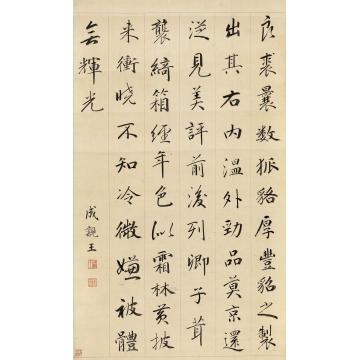 良裘曩数狐貉厚豊貂之製
出其右内温外勁品莫京還
從見美評前後列卿子茸
襲綺箱經年色似霜林黄披
来衝曉不知冷微嫌被體
無輝光
成親王